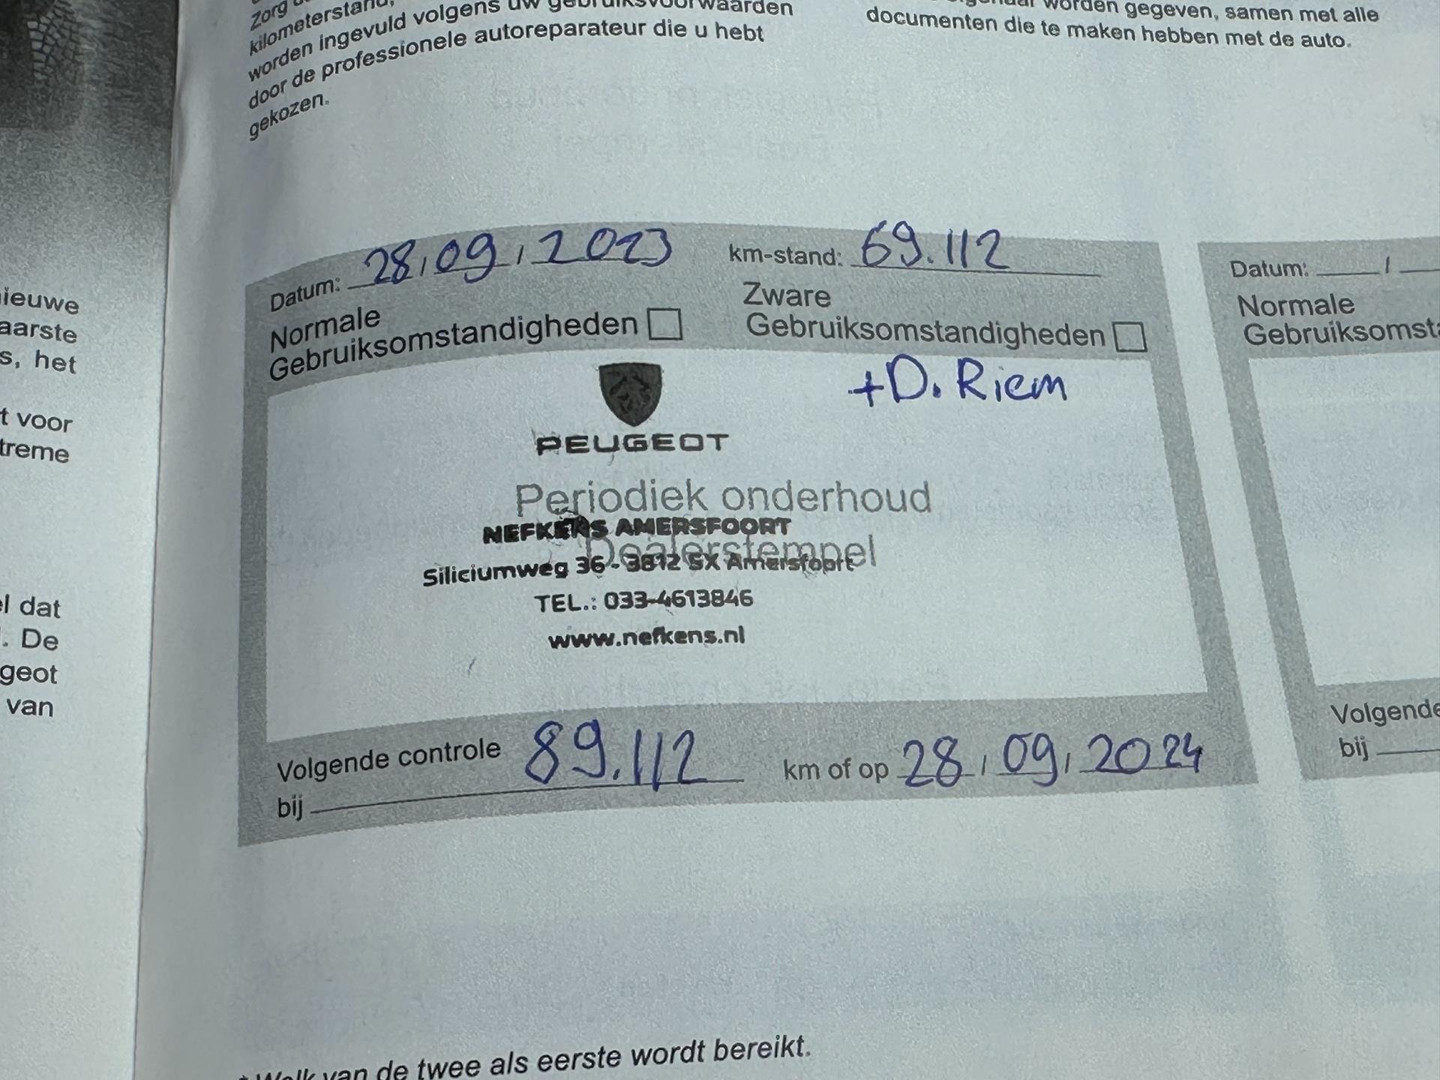 kilometerstand,
worden ingevuld volgens uw gebruiksvoorwaarden
door de professionele autoreparateur die u hebt
gekozen.
worden gegeven, samen met alle
documenten die te maken hebben met de auto.
nieuwe
aarste
s, het
t voor
treme
el dat
. De
geot
van
Datum: 28/09/2023 km-stand: 69.112
Normale
Gebruiksomstandigheden
Zware
Gebruiksomstandigheden
+D. Riem
PEUGEOT
Periodiek onderhoud
NEFKENS AMERSFOORT
Dealerstempel
Siliciumweg 36 - 3812 SX Amersfoort
TEL.: 033-4613846
www.nefkens.nl
Volgende controle
bij 89.112 km of op 28/09/2024
Datum: /
Normale
Gebruiksomsta
Volgende
bij
van de twee als eerste wordt bereikt.